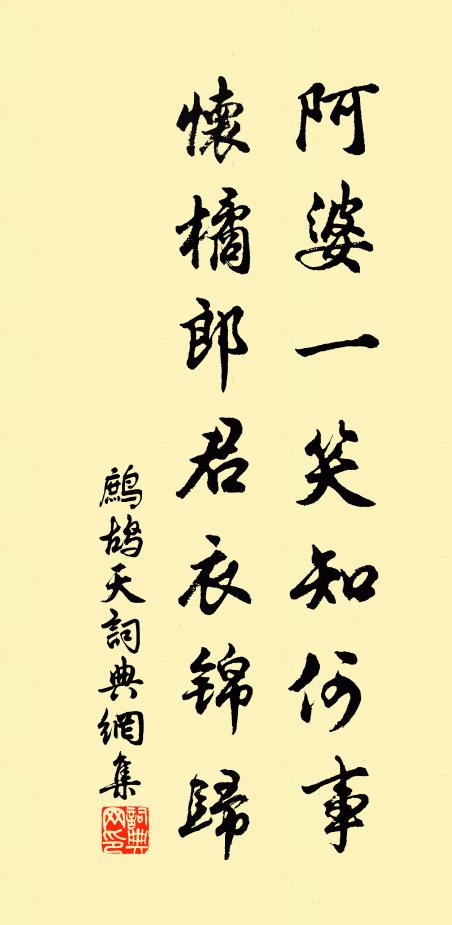 阿婆一笑知何事
懷橘郎君衣錦歸
鷓鴣天詞典網集
詞典網印